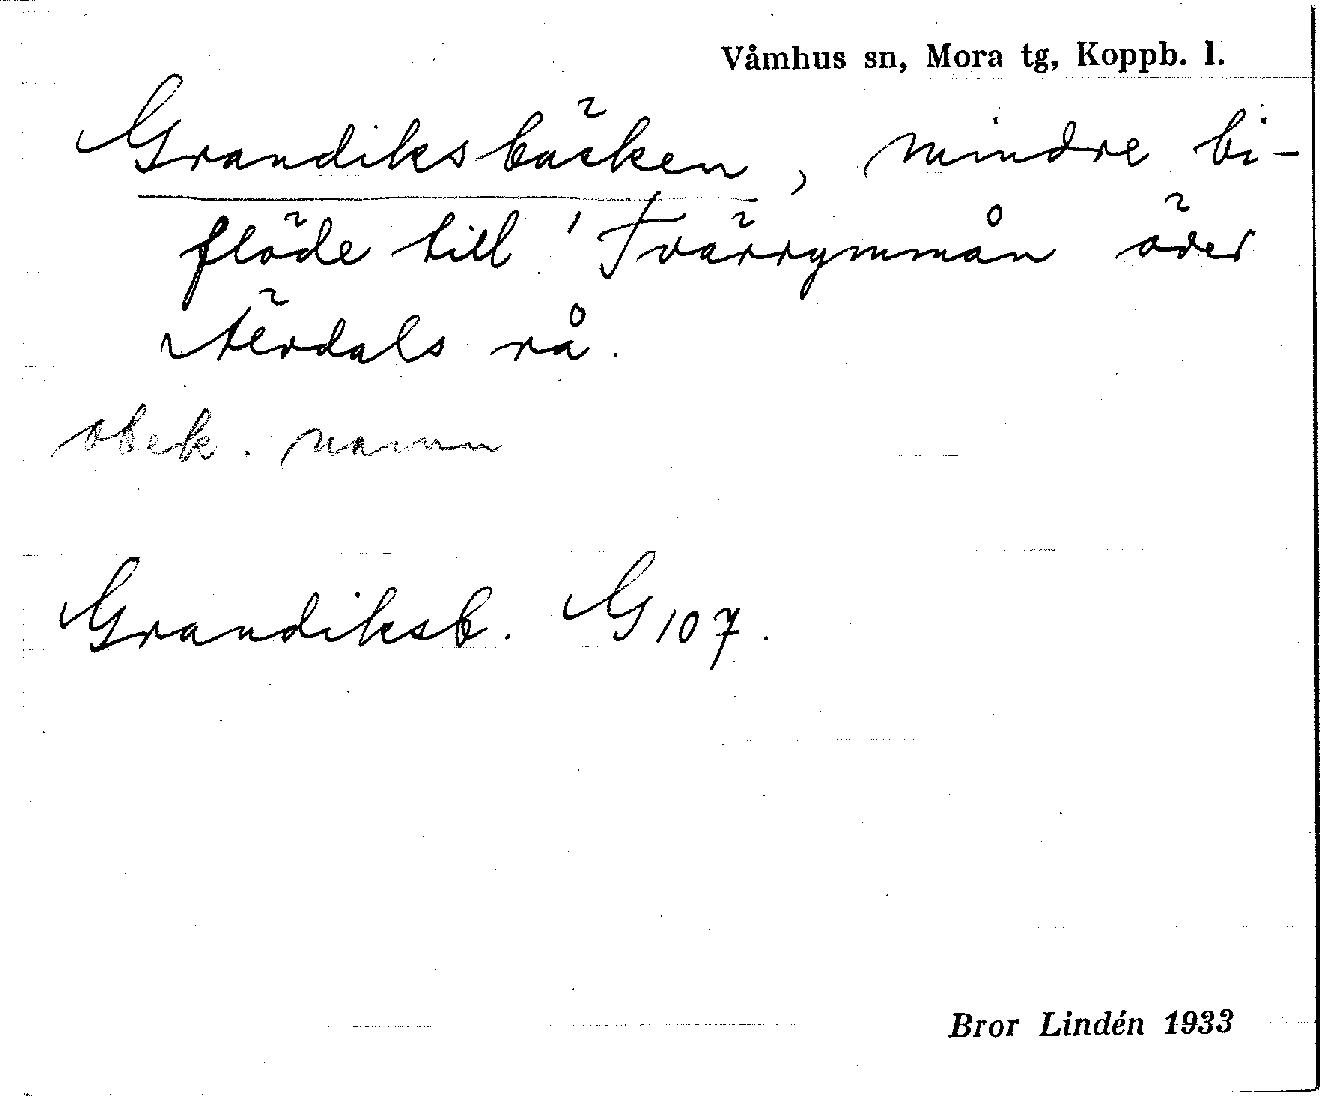 Våmhus sn, Mora tg, Koppb. l.
Grandiksbäcken, mindre bi-
flöde till 'Tvärrymmån över
Älvdals rå.
obek. namn
Grandiksb. G107.
Bror Lindén 1933